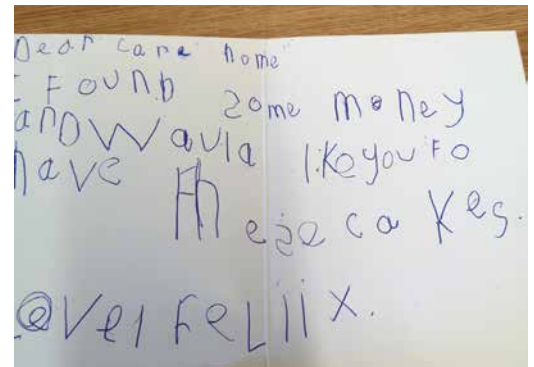 Dear care home
I FOUND zome money
and Would like you to
have Theze cakes.
Felix.